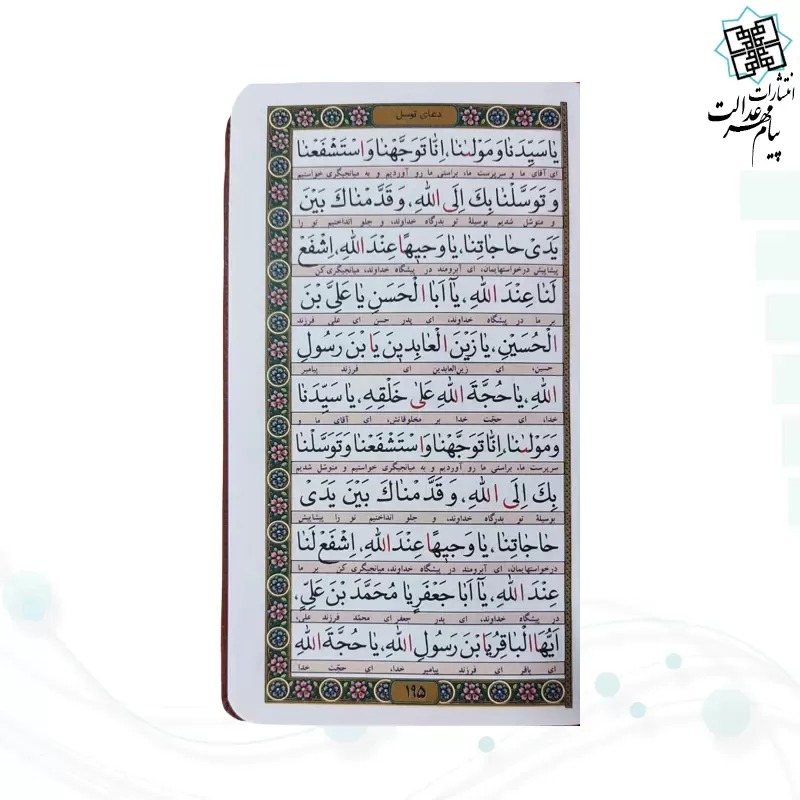 انتشارات
پیام مهر عدالت
دعای توسل
یا سَیِّدَنا وَ مَوْلٰینا، اِنّا تَوَجَّهْنا وَ اسْتَشْفَعْنا
ای آقای ما و سرپرست ما، براستی ما رو آوردیم و به میانجیگری خواستیم
وَ تَوَسَّلْنا بِكَ اِلَی اللهِ، وَ قَدَّمْناكَ بَیْنَ
و متوسّل شدیم بوسیلهٔ تو بدرگاه خداوند، و جلو انداختیم تو را
یَدَیْ حاجاتِنا، یا وَجیهًا عِنْدَ اللهِ، اِشْفَعْ
پیشاپیش درخواستهایمان، ای آبرومند در پیشگاه خداوند، میانجیگری کن
لَنا عِنْدَ اللهِ، یآ اَبَا الْحَسَنِ یا عَلِیَّ بْنَ
بر ما در پیشگاه خداوند، ای پدر حسن ای علی فرزند
الْحُسَیْنِ، یا زَیْنَ الْعابِدینَ یَا بْنَ رَسُولِ
حسین، ای زین‌العابدین ای فرزند پیامبر
اللهِ، یا حُجَّةَ اللهِ عَلیٰ خَلْقِهِ، یا سَیِّدَنا
خدا، ای حجّت خدا بر مخلوقاتش، ای آقای ما و
وَ مَوْلٰینا، اِنّا تَوَجَّهْنا وَ اسْتَشْفَعْنا وَ تَوَسَّلْنا
سرپرست ما، براستی ما رو آوردیم و به میانجیگری خواستیم و متوسّل شدیم
بِكَ اِلَی اللهِ، وَ قَدَّمْناكَ بَیْنَ یَدَیْ
بوسیلهٔ تو بدرگاه خداوند، و جلو انداختیم تو را پیشاپیش
حاجاتِنا، یا وَجیهًا عِنْدَ اللهِ، اِشْفَعْ لَنا
درخواستهایمان، ای آبرومند در پیشگاه خداوند، میانجیگری کن بر ما
عِنْدَ اللهِ، یآ اَبا جَعْفَرٍ یا مُحَمَّدَ بْنَ عَلِیٍّ،
در پیشگاه خداوند، ای پدر جعفر ای محمّد فرزند علی،
اَیُّهَا الْباقِرُ یَا بْنَ رَسُولِ اللهِ، یا حُجَّةَ اللهِ
ای باقر ای فرزند پیامبر خدا، ای حجّت خدا
۱۹۵